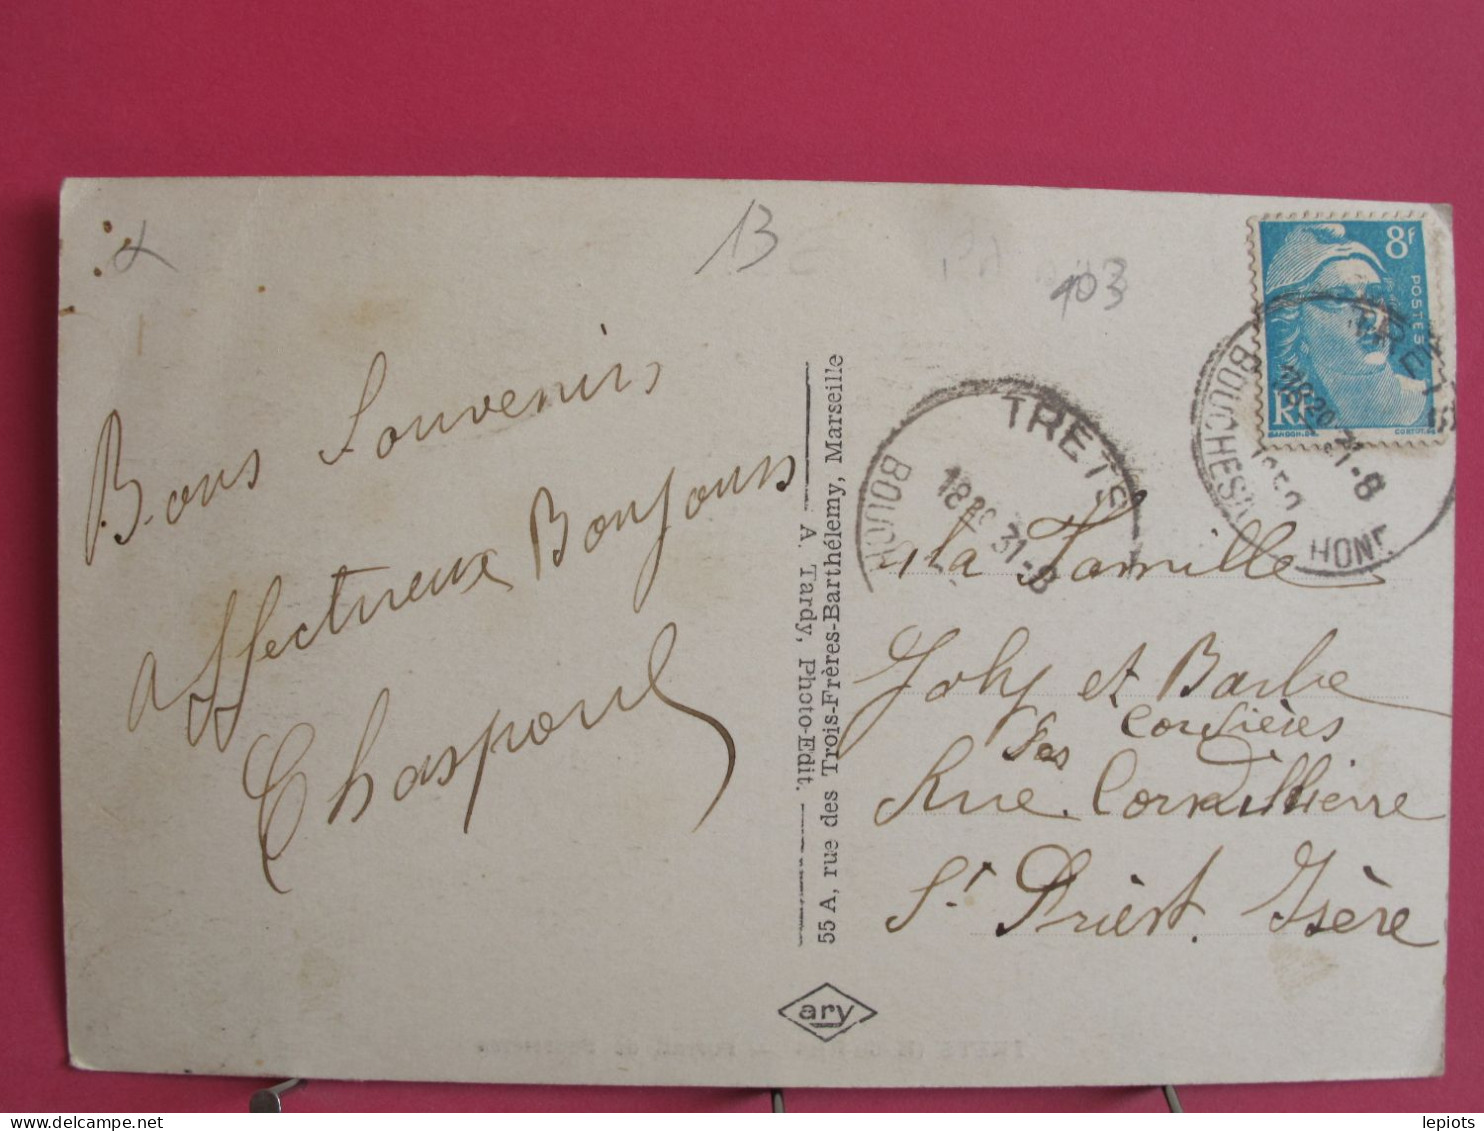 13
103
Bons Souvenirs
affectueux Bonjours
Chaspoul
A. Tardy, Photo-Edit.
55 A, rue des Trois-Frères-Barthélemy, Marseille
ary
8f
POSTES
RF
TRETS
18 20 31-8
BOUCHES
HONE
TRETS
18 20 31-8
BOUCH
la Famille
Joly et Barbe
des Cordières
Rue
St Priest. Isère
lepiots
delcampe.net